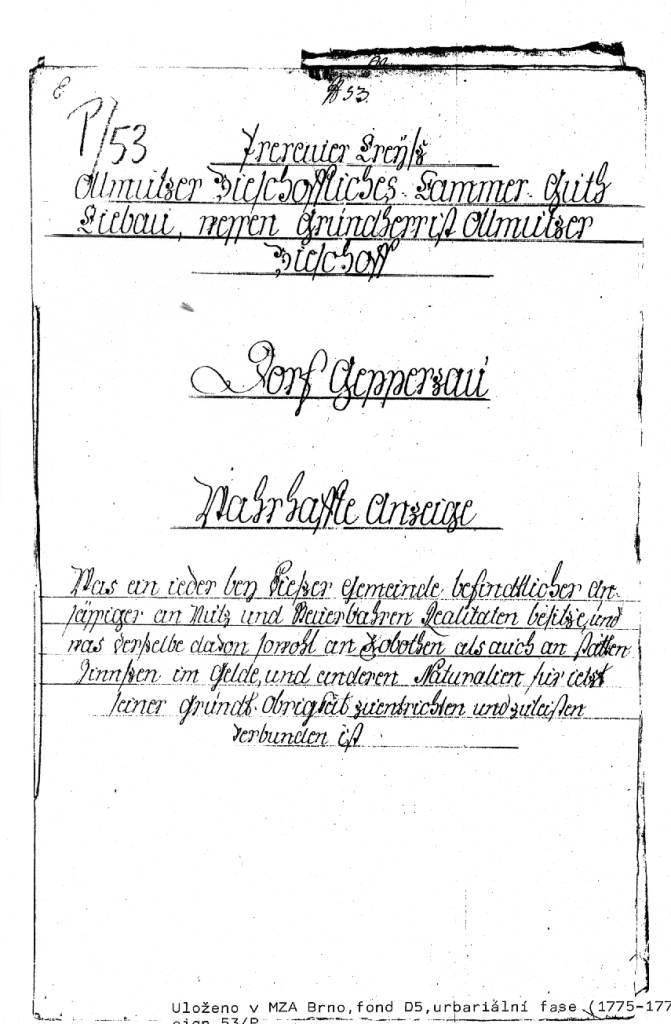 53.
P/53
Prerauer Kreyß
Ollmützer Bischöffliches Cammer Guth
Liebau, wessen Grundherr ist Ollmützer
Bischoff
Dorf Gepperzau
Wahrhaffte Anzeige
Was ein ieder bey dießer Gemeinde befindtlicher An-
säßiger an Nutz und Steuerbahren Realitäten besitze, und
was derselbe davon sowohl an Robothen als auch an
Zinnßen im Gelde, und anderen Naturalien für ietzt
seiner Grundt Obrigkeit zuentrichten und zuleisten
verbunden ist
Uloženo v MZA Brno,fond D5,urbariální fase (1775-177
sign 53/P